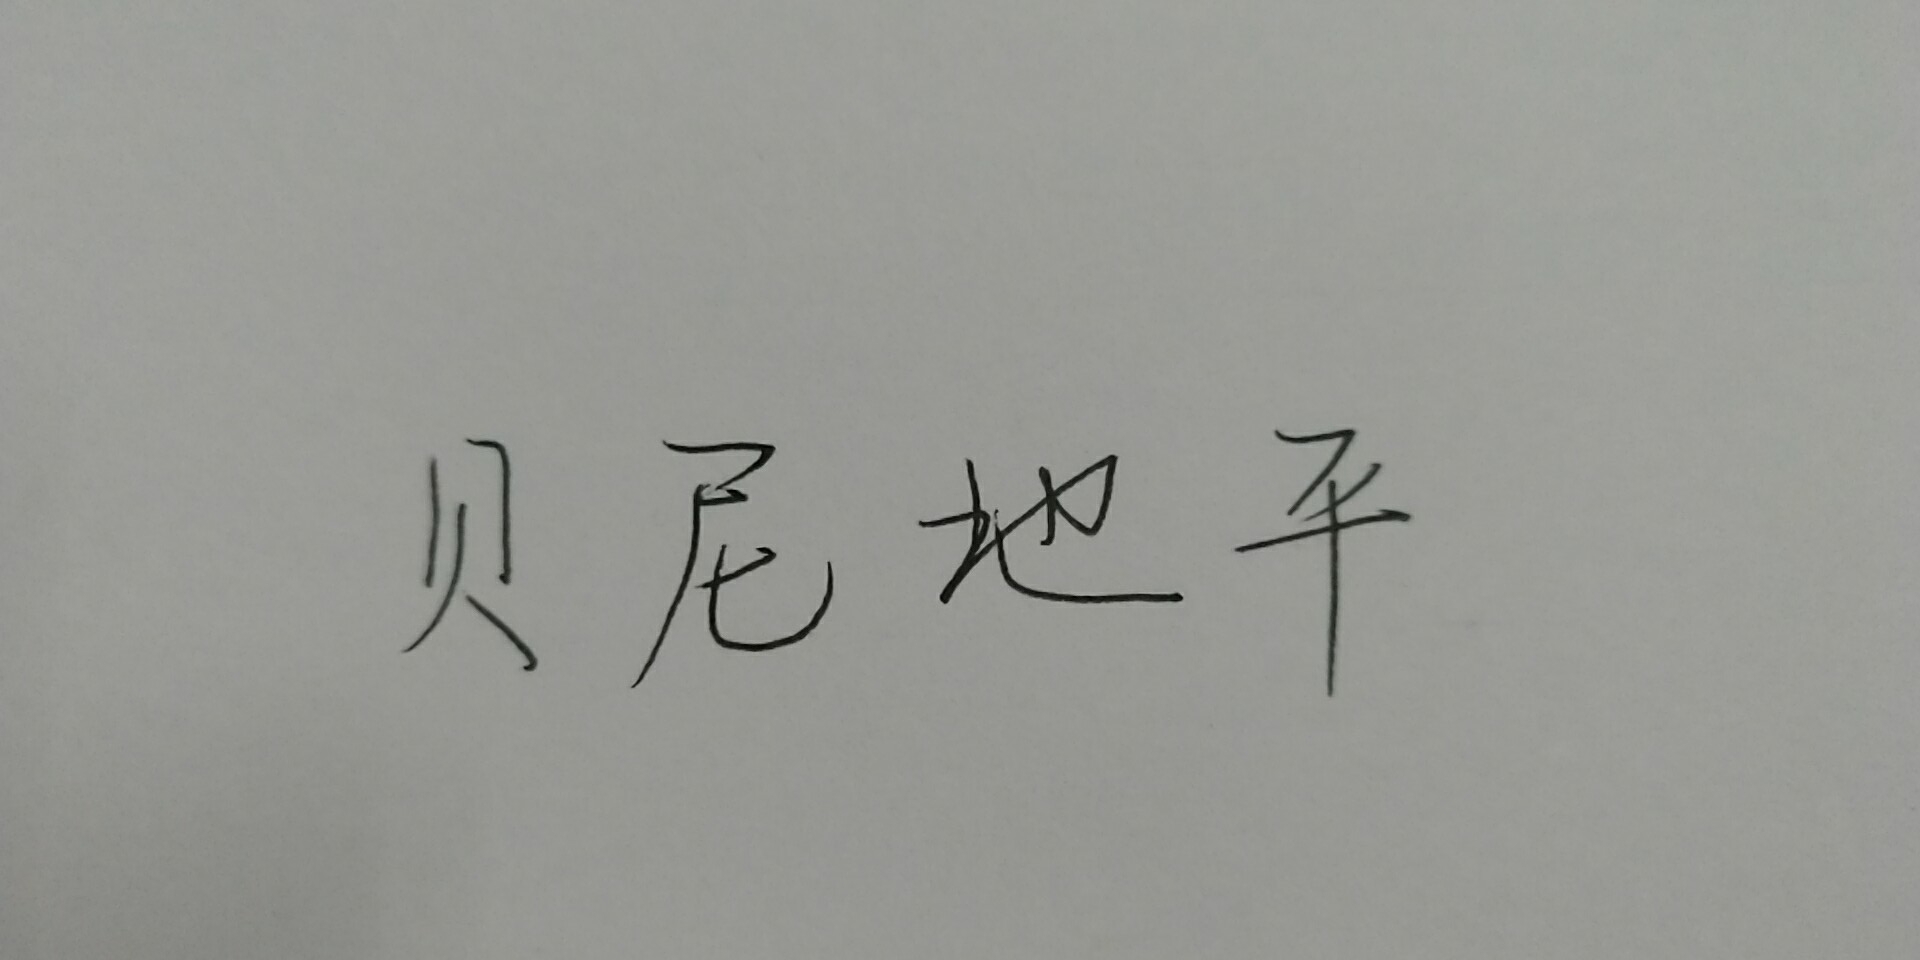 贝尼地平